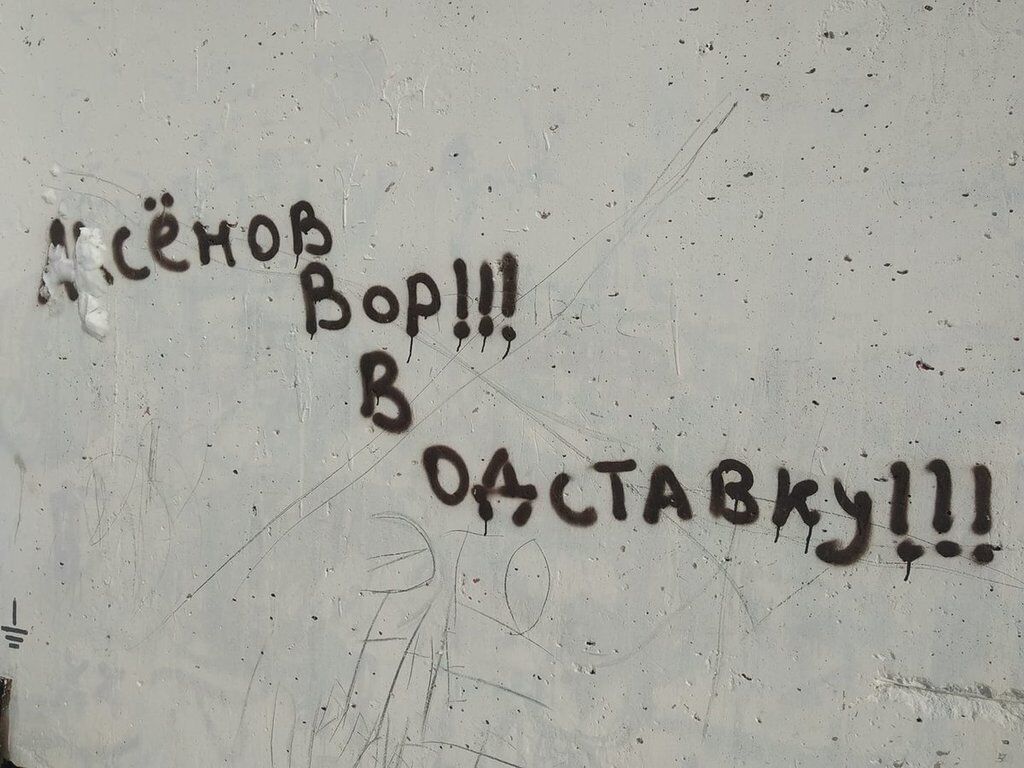 Аксёнов
Вор!!!
В
ОДСТАВКУ!!!